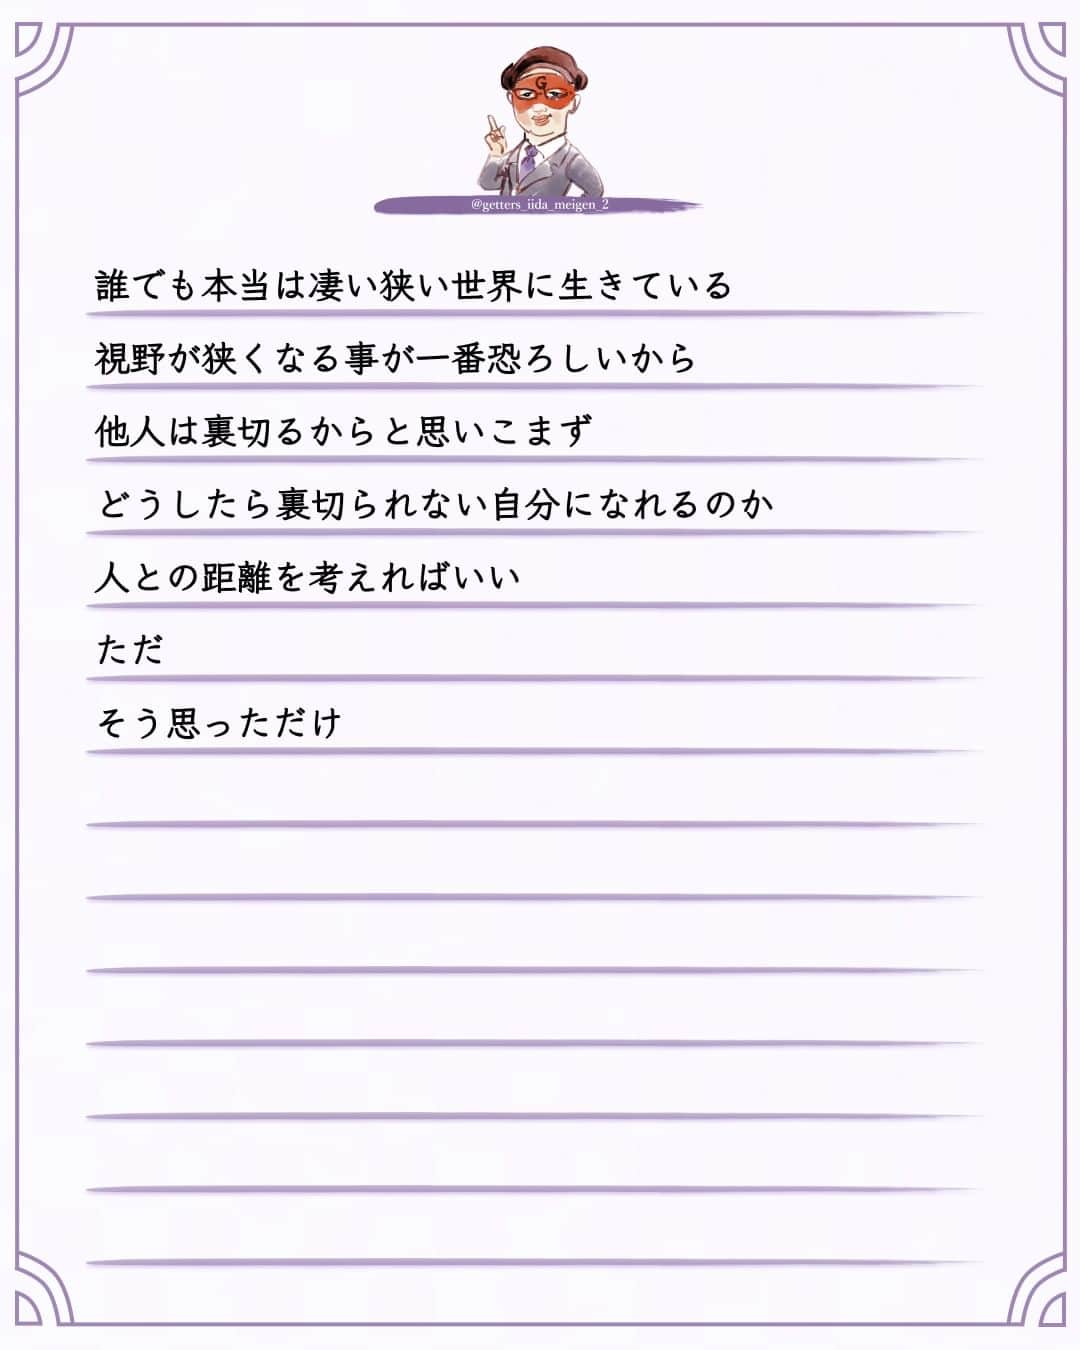 G
@getters_iida_meigen_2
誰でも本当は凄い狭い世界に生きている
視野が狭くなる事が一番恐ろしいから
他人は裏切るからと思いこまず
どうしたら裏切られない自分になれるのか
人との距離を考えればいい
ただ
そう思っただけ